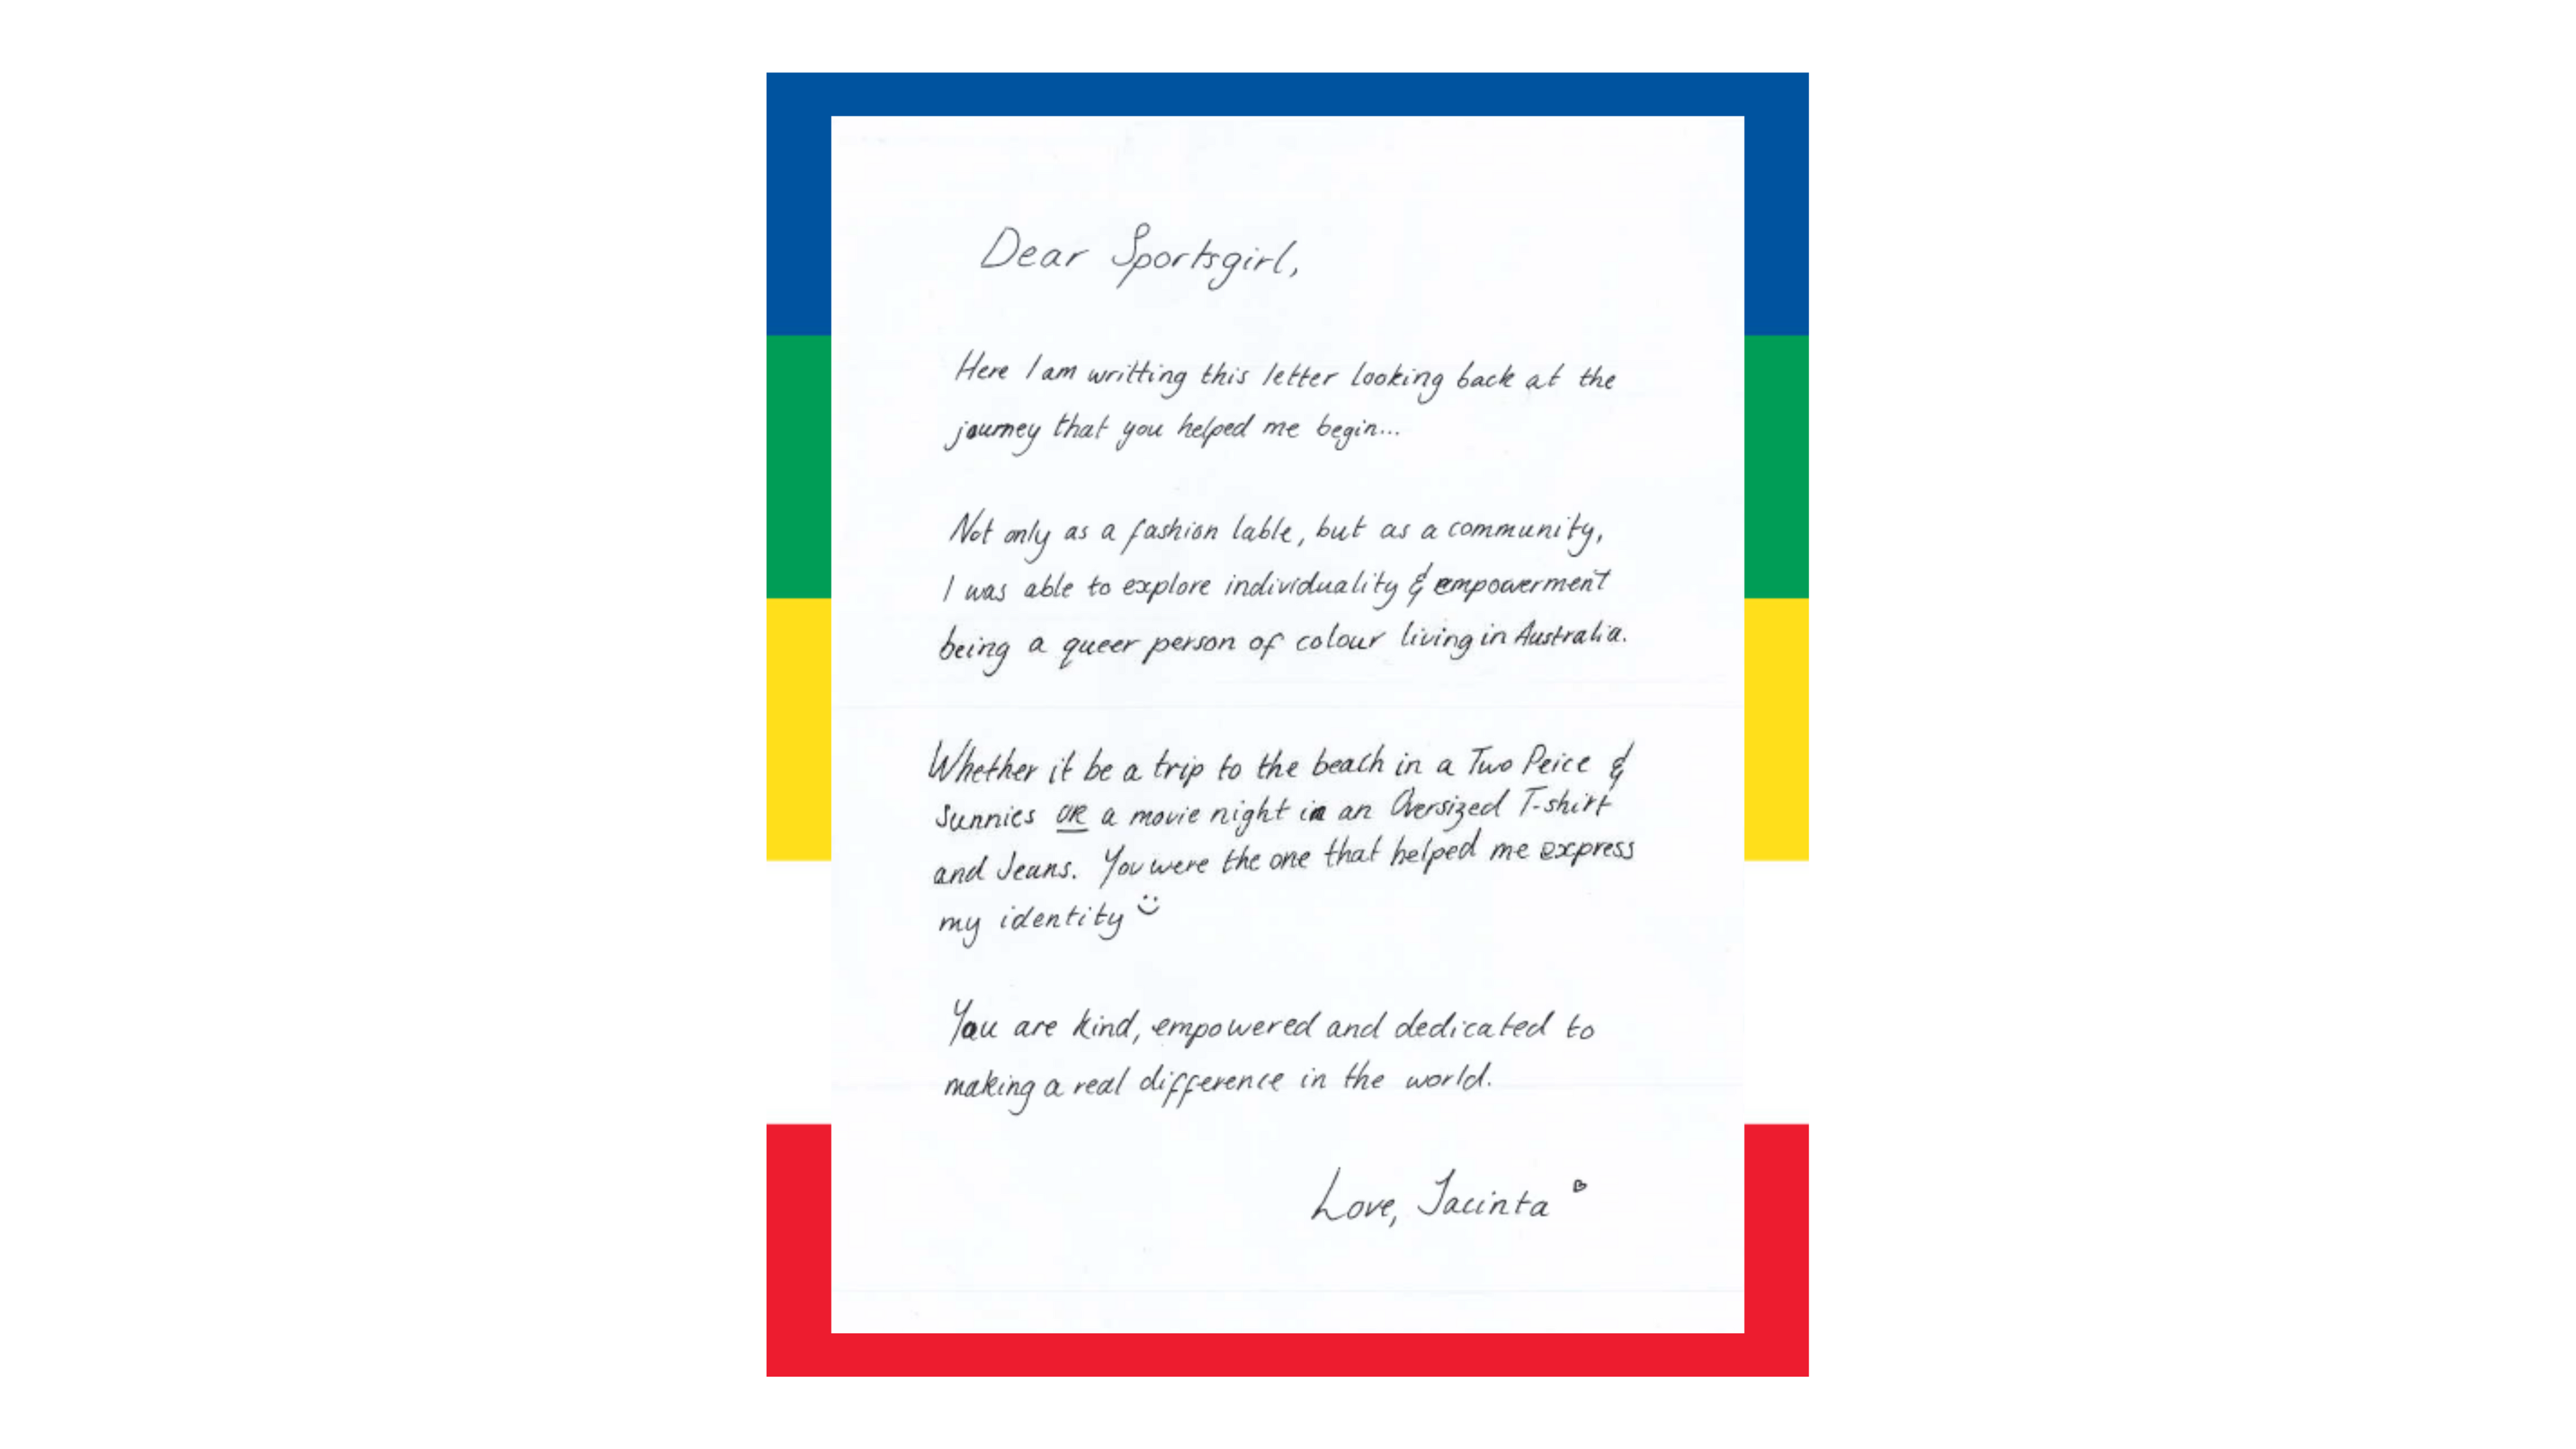 Dear Sportsgirl,
Here I am writting this letter looking back at the
journey that you helped me begin...
Not only as a fashion lable, but as a community,
I was able to explore individuality & empowerment
being a queer person of colour living in Australia.
Whether it be a trip to the beach in a Two Peice &
Sunnies OR a movie night in an Oversized T-shirt
and Jeans. You were the one that helped me express
my identity
You are kind, empowered and dedicated to
making a real difference in the world.
Love, Jacinta